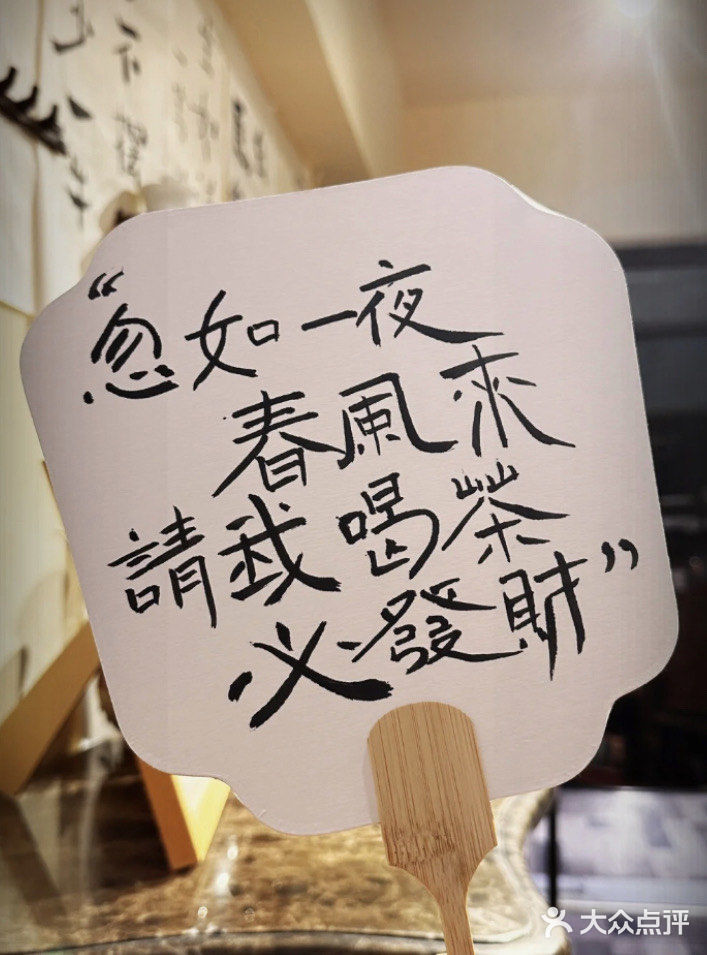 “忽如一夜
春風來
請我喝茶
必發財”
大众点评